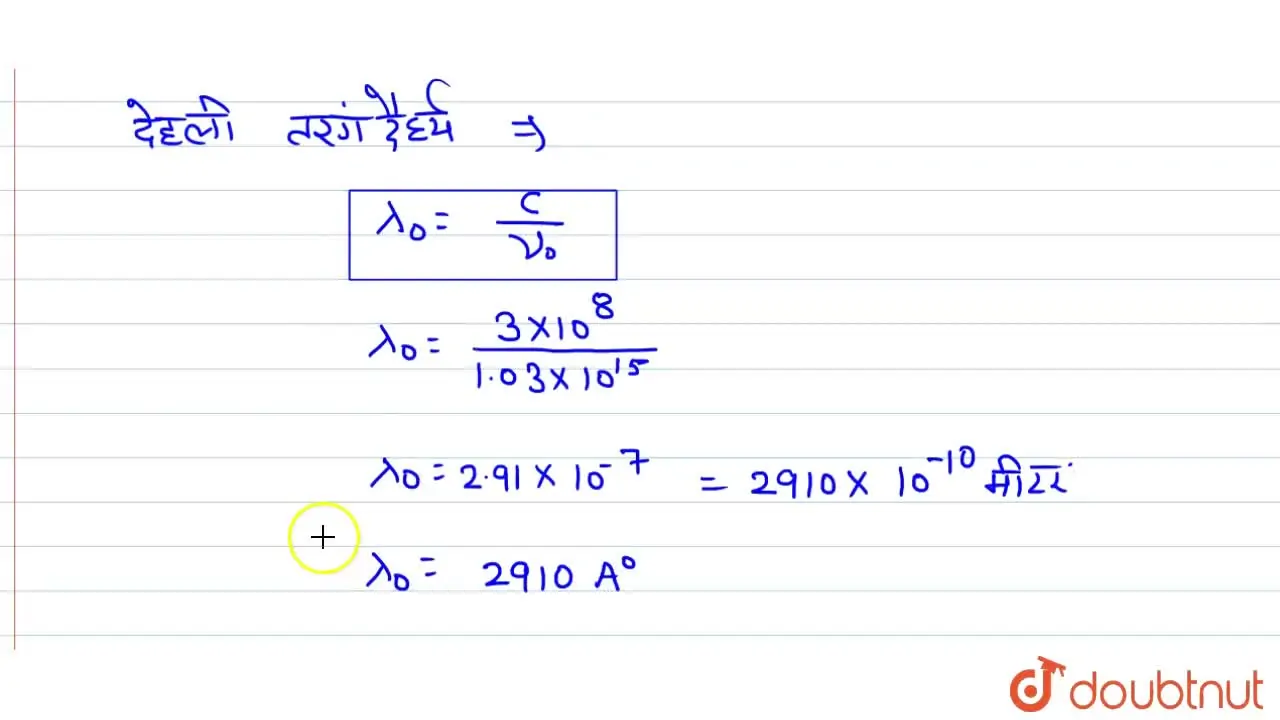 देहली तरंगदैर्ध्य ⇒
λ₀ = C/ν₀
λ₀ = 3×10⁸/1.03×10¹⁵
λ₀ = 2.91 × 10⁻⁷ = 2910 × 10⁻¹⁰ मीटर
λ₀ = 2910 A⁰
doubtnut